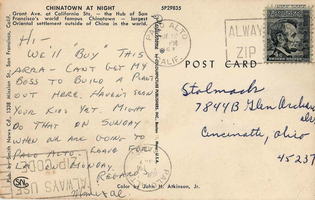 CHINATOWN AT NIGHT
Grant Ave. at California St. — the Hub of San
Francisco's world famous Chinatown — largest
Oriental settlement outside of China in the world.
5P29835
HI-
WE'LL "BUY" THIS
AREA - CAN'T GET MY
BOSS TO BUILD A PLANT
OUT HERE. HAVEN'T SEEN
YOUR KIDS YET. MIGHT
DO THAT ON SUNDAY
WHEN WE ARE GOING TO
PALO ALTO. LEAVE FOR
L.A. MONDAY.
REGARDS
Pub. by Smith News Co., 1238 Mission St., San Francisco, Calif.
PALO ALTO
CALIF.
ALWAYS
ZIP
POST CARD
Stolmack
7844B Glen Orchard
Cincinnati, Ohio
45237
ZIP CODE
ALWAYS USE
Color by John H. Atkinson, Jr.